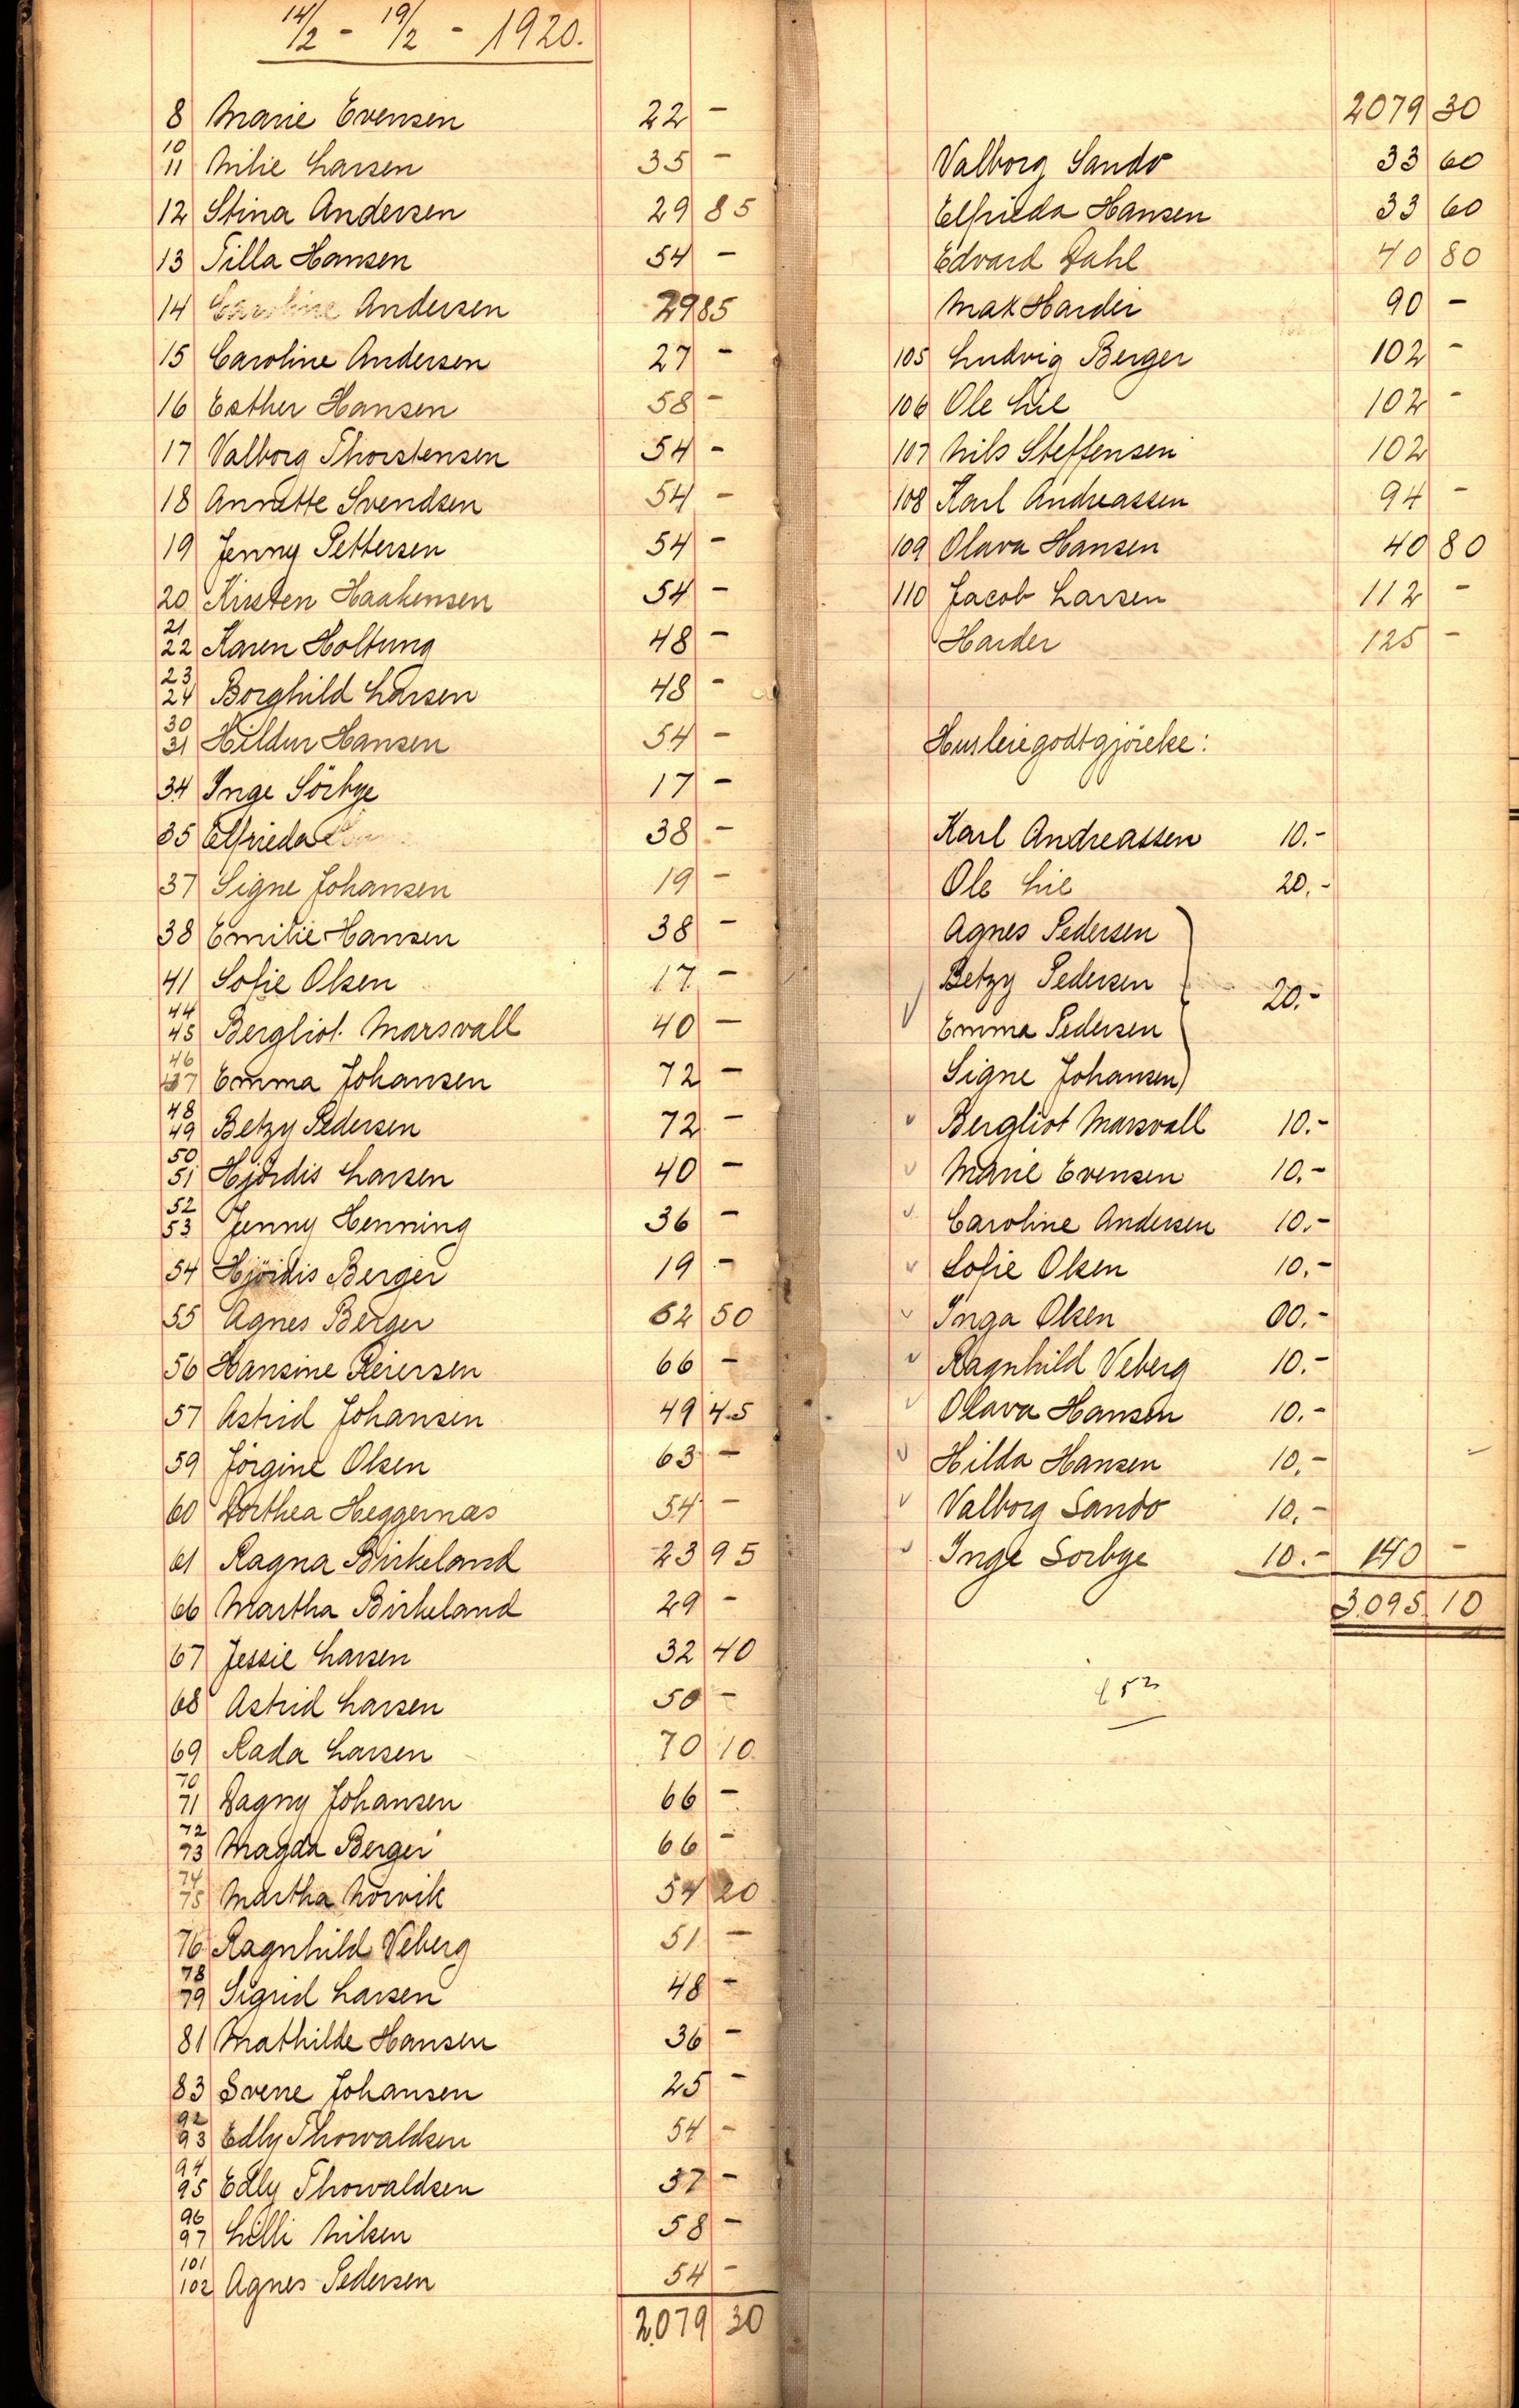 14/2 - 19/2 - 1920.
8 Marie Evensen 22 -
10
11 Milie Larsen 35 -
12 Stina Andersen 29 85
13 Tilla Hansen 54 -
14 Caroline Andersen 29 85
15 Caroline Andersen 27 -
16 Esther Hansen 58 -
17 Valborg Thorstensen 54 -
18 Annette Svendsen 54 -
19 Jenny Pettersen 54 -
20 Kirsten Haakensen 54 -
21
22 Karen Holtung 48 -
23
24 Borghild Larsen 48 -
30
31 Hildur Hansen 54 -
34 Inge Sörbye 17 -
35 Elfrieda 38 -
37 Signe Johansen 19 -
38 Emilie Hansen 38 -
41 Sofie Olsen 17 -
44
45 Bergliot Marsvall 40 -
46
47 Emma Johansen 72 -
48
49 Betzy Pedersen 72 -
50
51 Hjördis Larsen 40 -
52
53 Jenny Henning 36 -
54 Hjördis Berger 19 -
55 Agnes Berger 62 50
56 Hansine Reiersen 66 -
57 Astrid Johansen 49 45
59 Jörgine Olsen 63 -
60 Dorthea Heggernæs 54 -
61 Ragna Birkeland 23 95
66 Martha Birkeland 29 -
67 Jessie Larsen 32 40
68 Astrid Larsen 50 -
69 Rada Larsen 70 10
70
71 Dagny Johansen 66 -
72
73 Magda Berger 66 -
74
75 Martha Norvik 54 20
76 Ragnhild Veberg 51 -
78
79 Sigrid Larsen 48 -
81 Mathilde Hansen 36 -
83 Svene Johansen 25 -
92
93 Edly Thowaldsen 54 -
94
95 Edly Thowaldsen 37 -
96
97 Lilli Nilsen 58 -
101
102 Agnes Pedersen 54 -
2079 30
2079 30
Valborg Sando 33 60
Elfrieda Hansen 33 60
Edvard Dahl 40 80
Max Harder 90 -
105 Ludvig Berger 102 -
106 Ole Lie 102 -
107 Nils Steffensen 102
108 Karl Andreassen 94 -
109 Olava Hansen 40 80
110 Jacob Larsen 112 -
Harder 125 -
Husleiegodtgjörelse:
Karl Andreassen 10.-
Ole Lie 20.-
Agnes Pedersen
Betzy Pedersen
20.-
Emma Pedersen
Signe Johansen
Bergliot Marsvall 10.-
Marie Evensen 10.-
Caroline Andersen 10.-
Sofie Olsen 10.-
Inga Olsen 00.-
Ragnhild Veberg 10.-
Olava Hansen 10.-
Hilda Hansen 10.-
Valborg Sando 10.-
Inge Sorbye 10.- 140 -
3.095 10